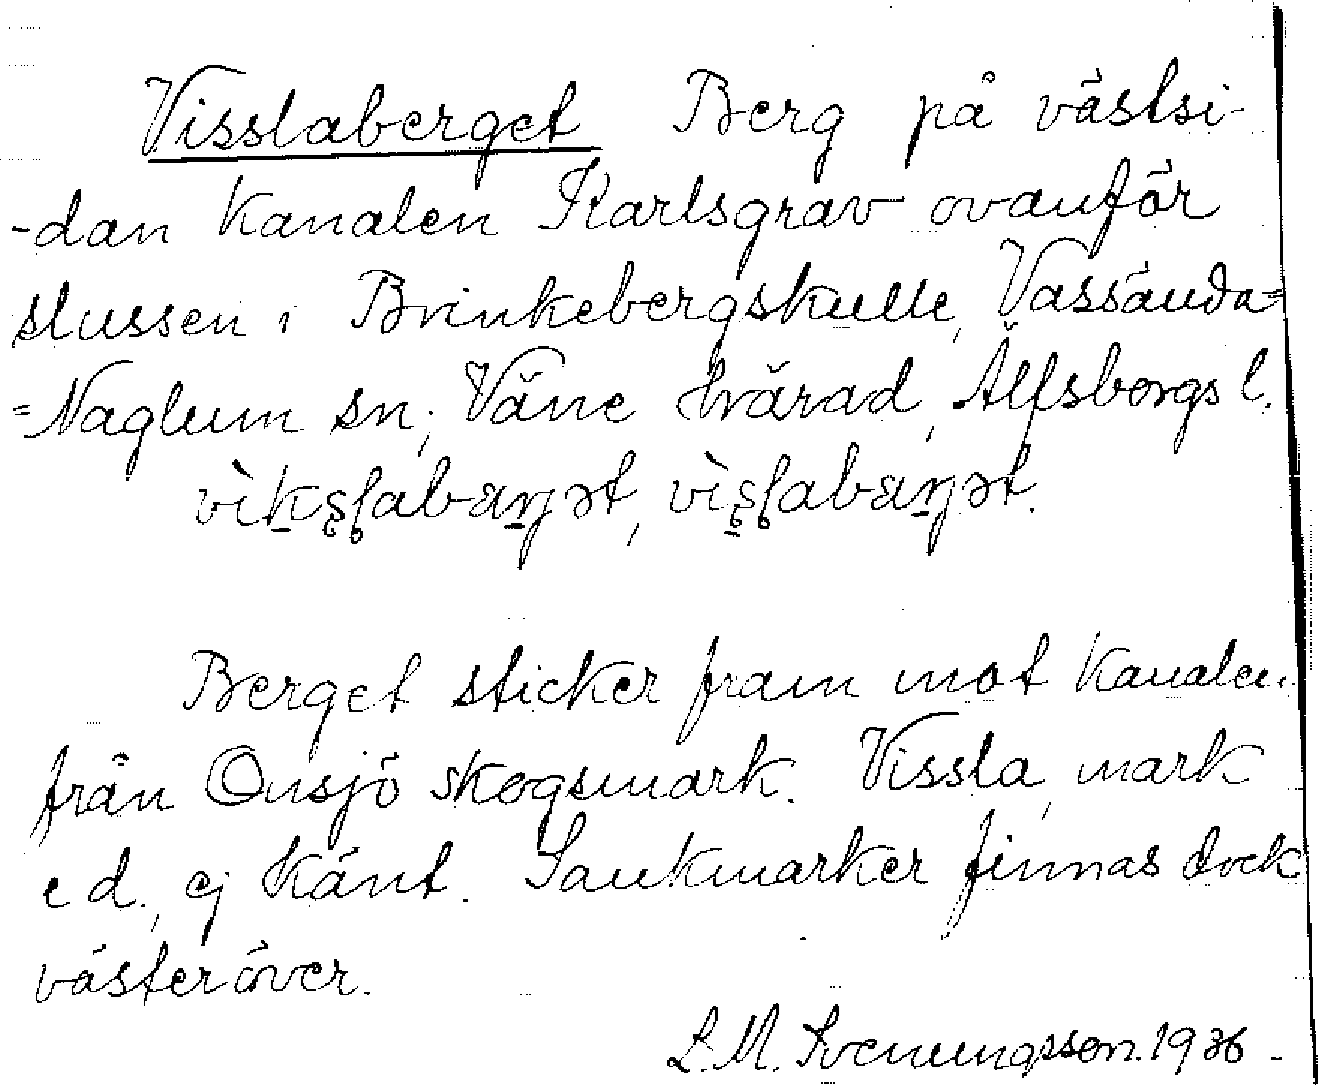 Visslaberget Berg på västsi-
-dan kanalen Karlsgrav ovanför
slussen i Brinkebergskulle, Vassända=
=Naglum sn; Väne härad, Älfsborgs l.
vìkşļabæŋət, vìşļabæŋət.
Berget sticker fram mot kanalen
från Onsjö skogsmark. Vissla, mark
e d., ej känt. Sankmarker finnas dock
västeröver.
L. M. Svenungsson. 1936-